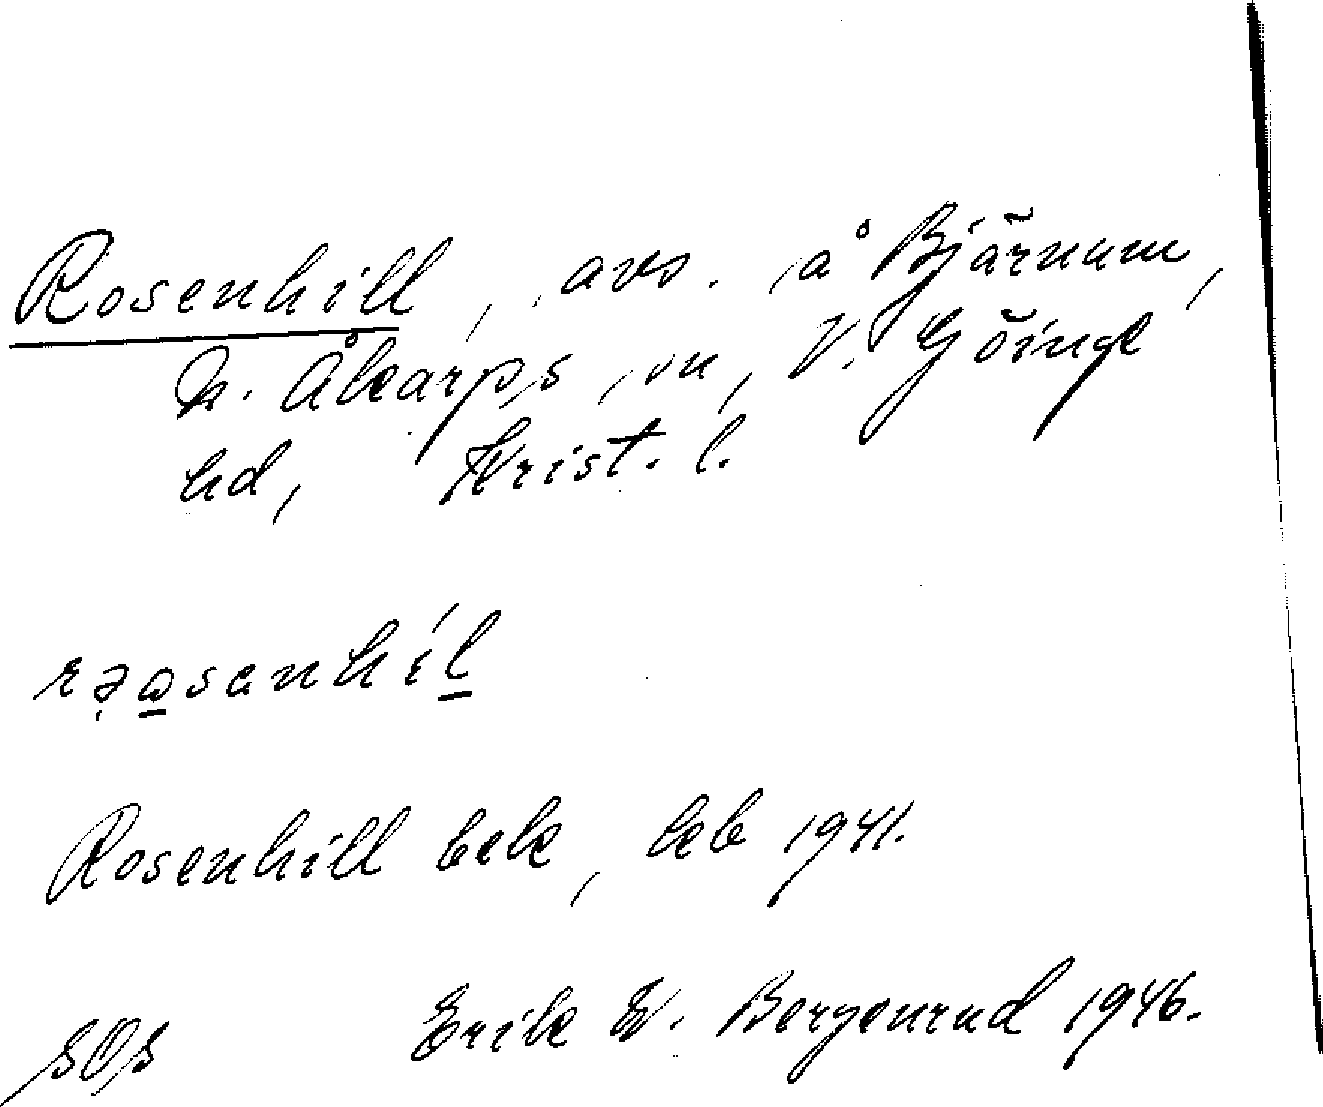 Rosenhill, avs. å Bjärnum,
N. Åkarps sn, V. Göinge
hd, Krist. l.
Rosenhill bek, leb 1941.
SOS Erik W. Bergenrud 1946.